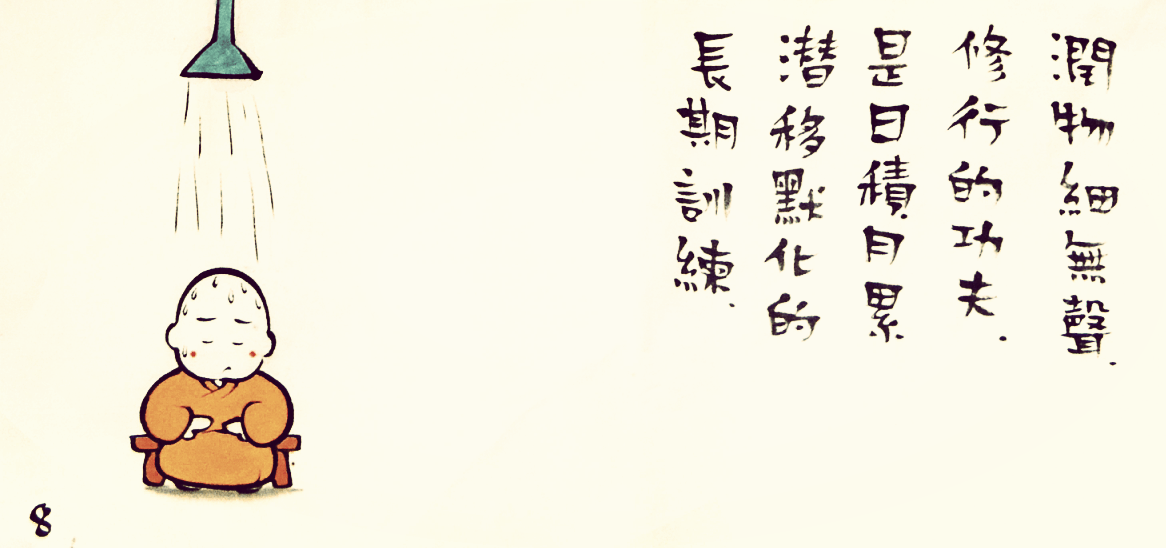 潤物細無聲.
修行的功夫.
是日積月累
潛移默化的
長期訓練.
8